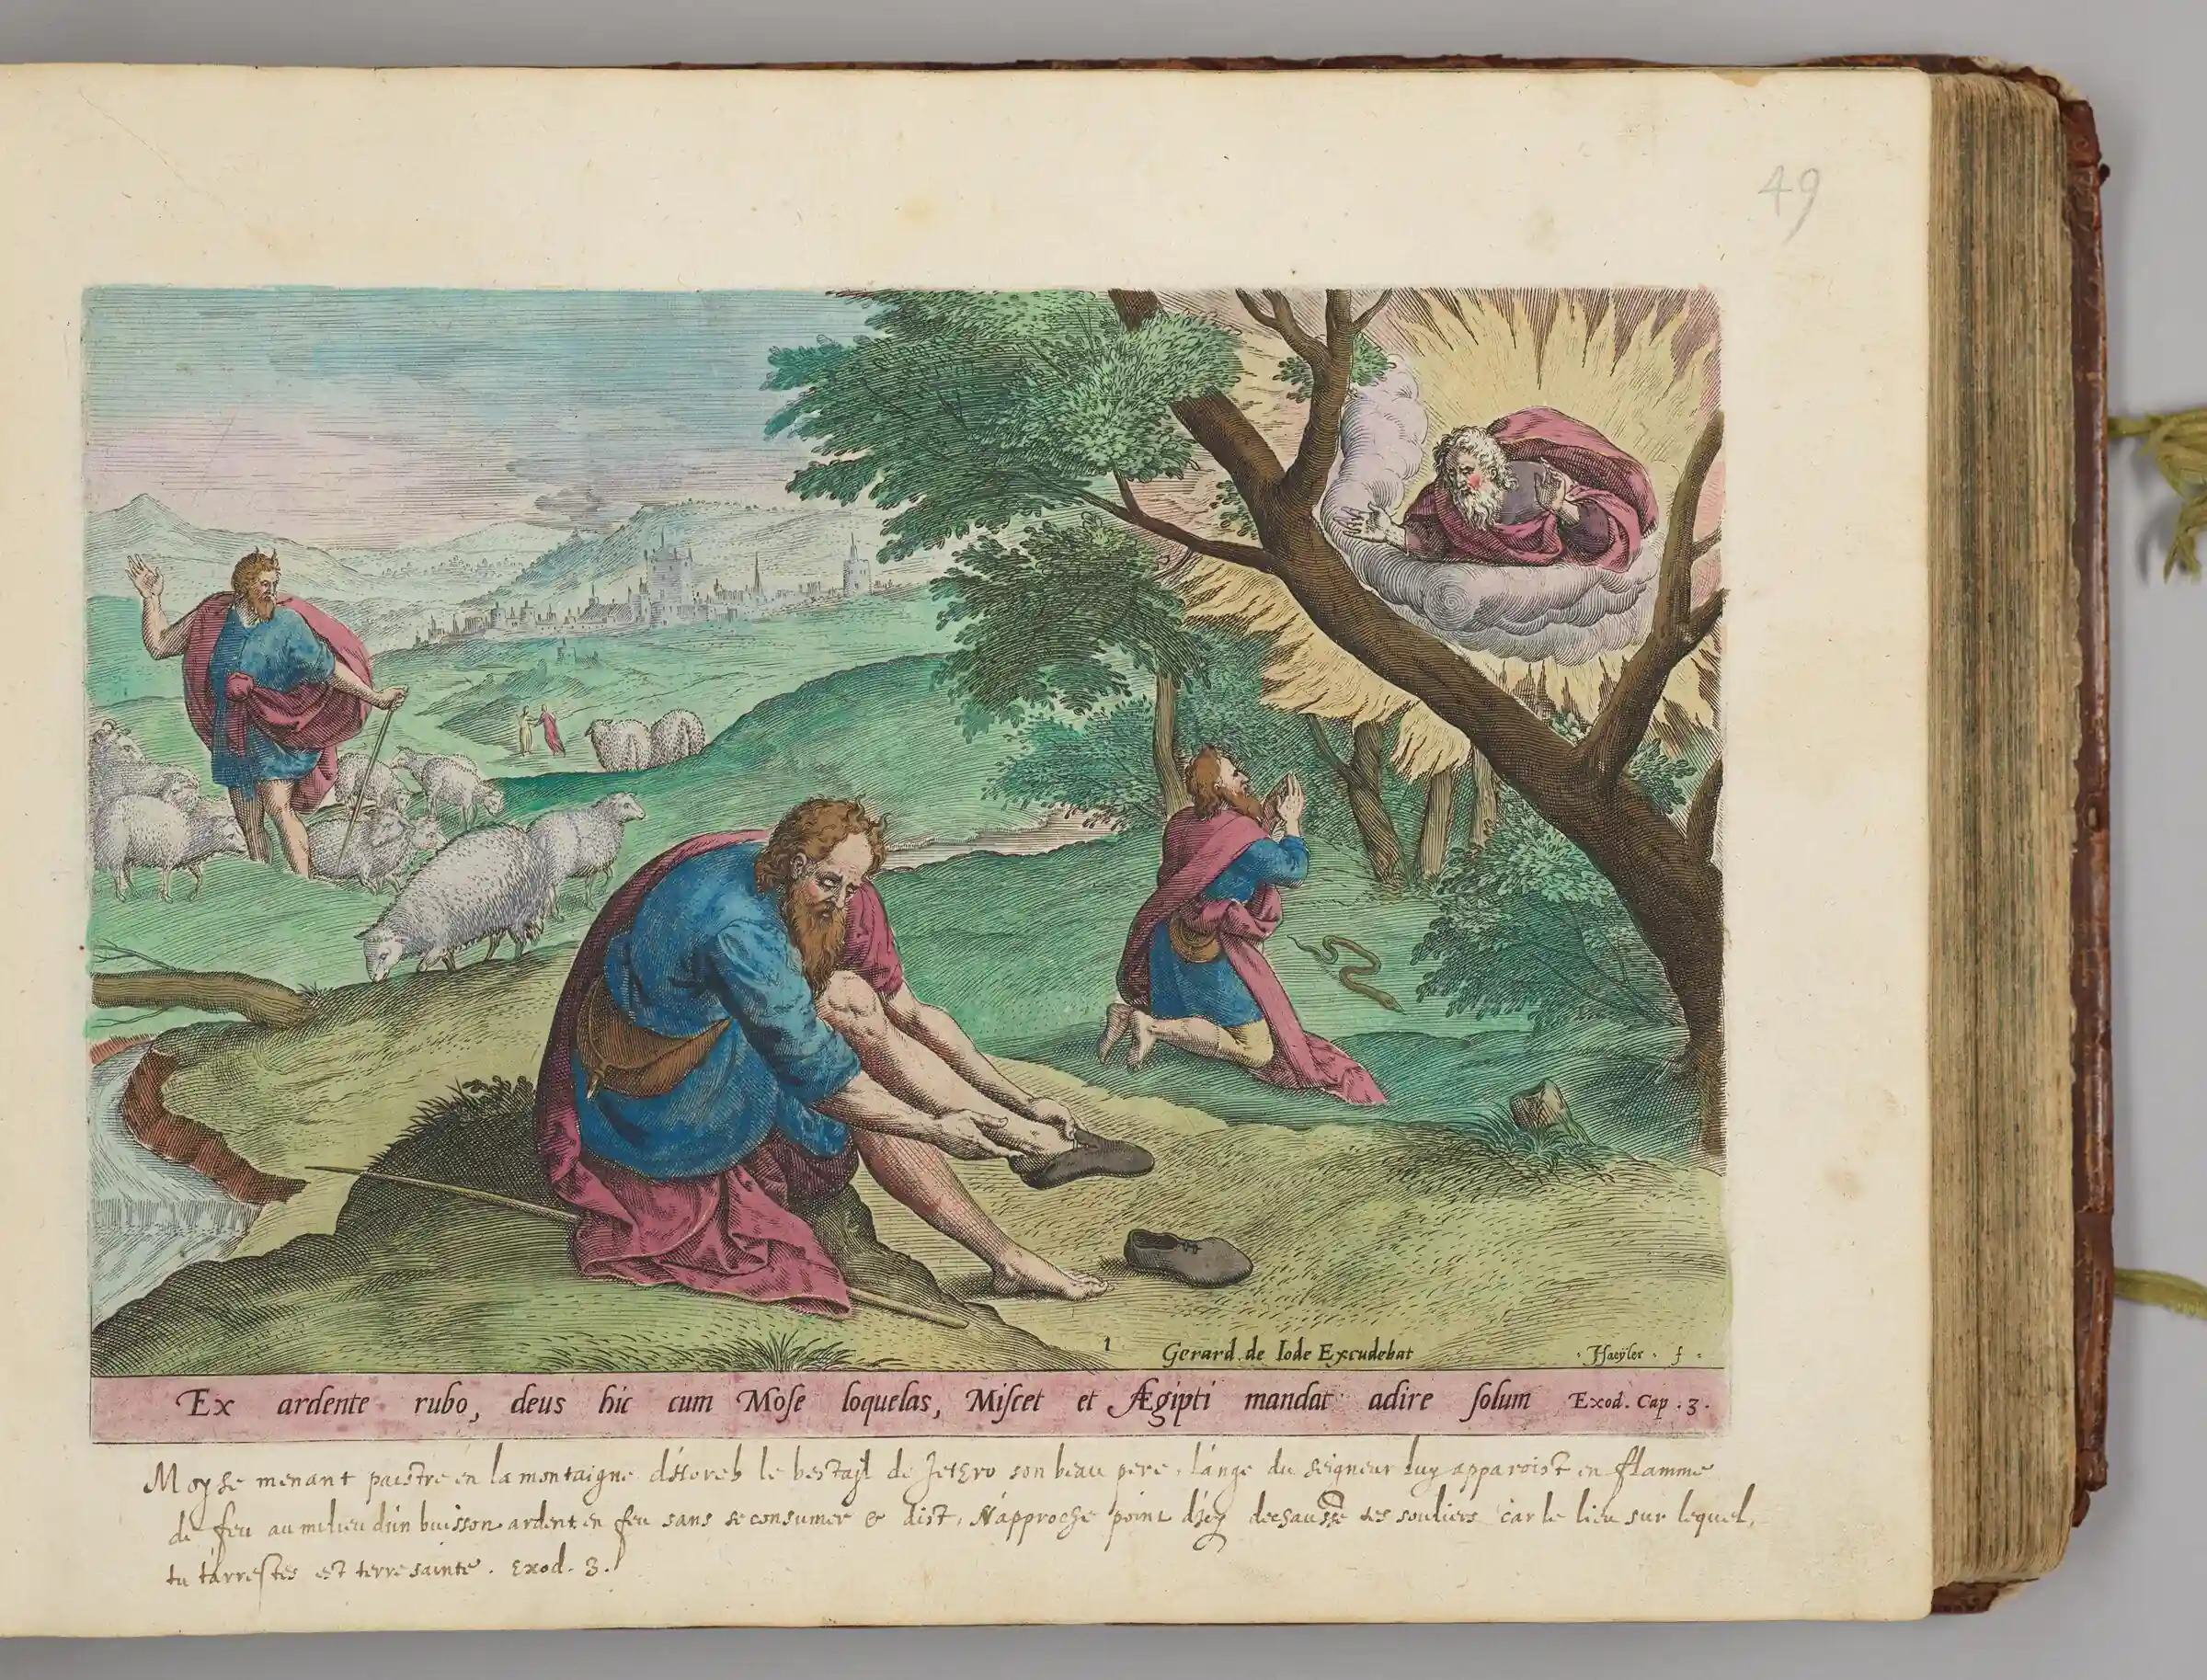 49
1 Gerard de Iode Excudebat Haeyler f
Ex ardente rubo, deus hic cum Mose loquelas, Miscet et Ægipti mandat adire solum Exod. Cap. 3.
Moyse menant paistre en la montaigne d'Horeb le bestajl de Jetgro son beau pere, l'ange du seigneur luy apparoist en flamme
de feu au milieu d'un buisson ardent en feu sans se consumer & dist, N'approche point d'icy dechausse tes souliers car le lieu sur lequel,
tu t'arrestes est terre sainte. Exod. 3.